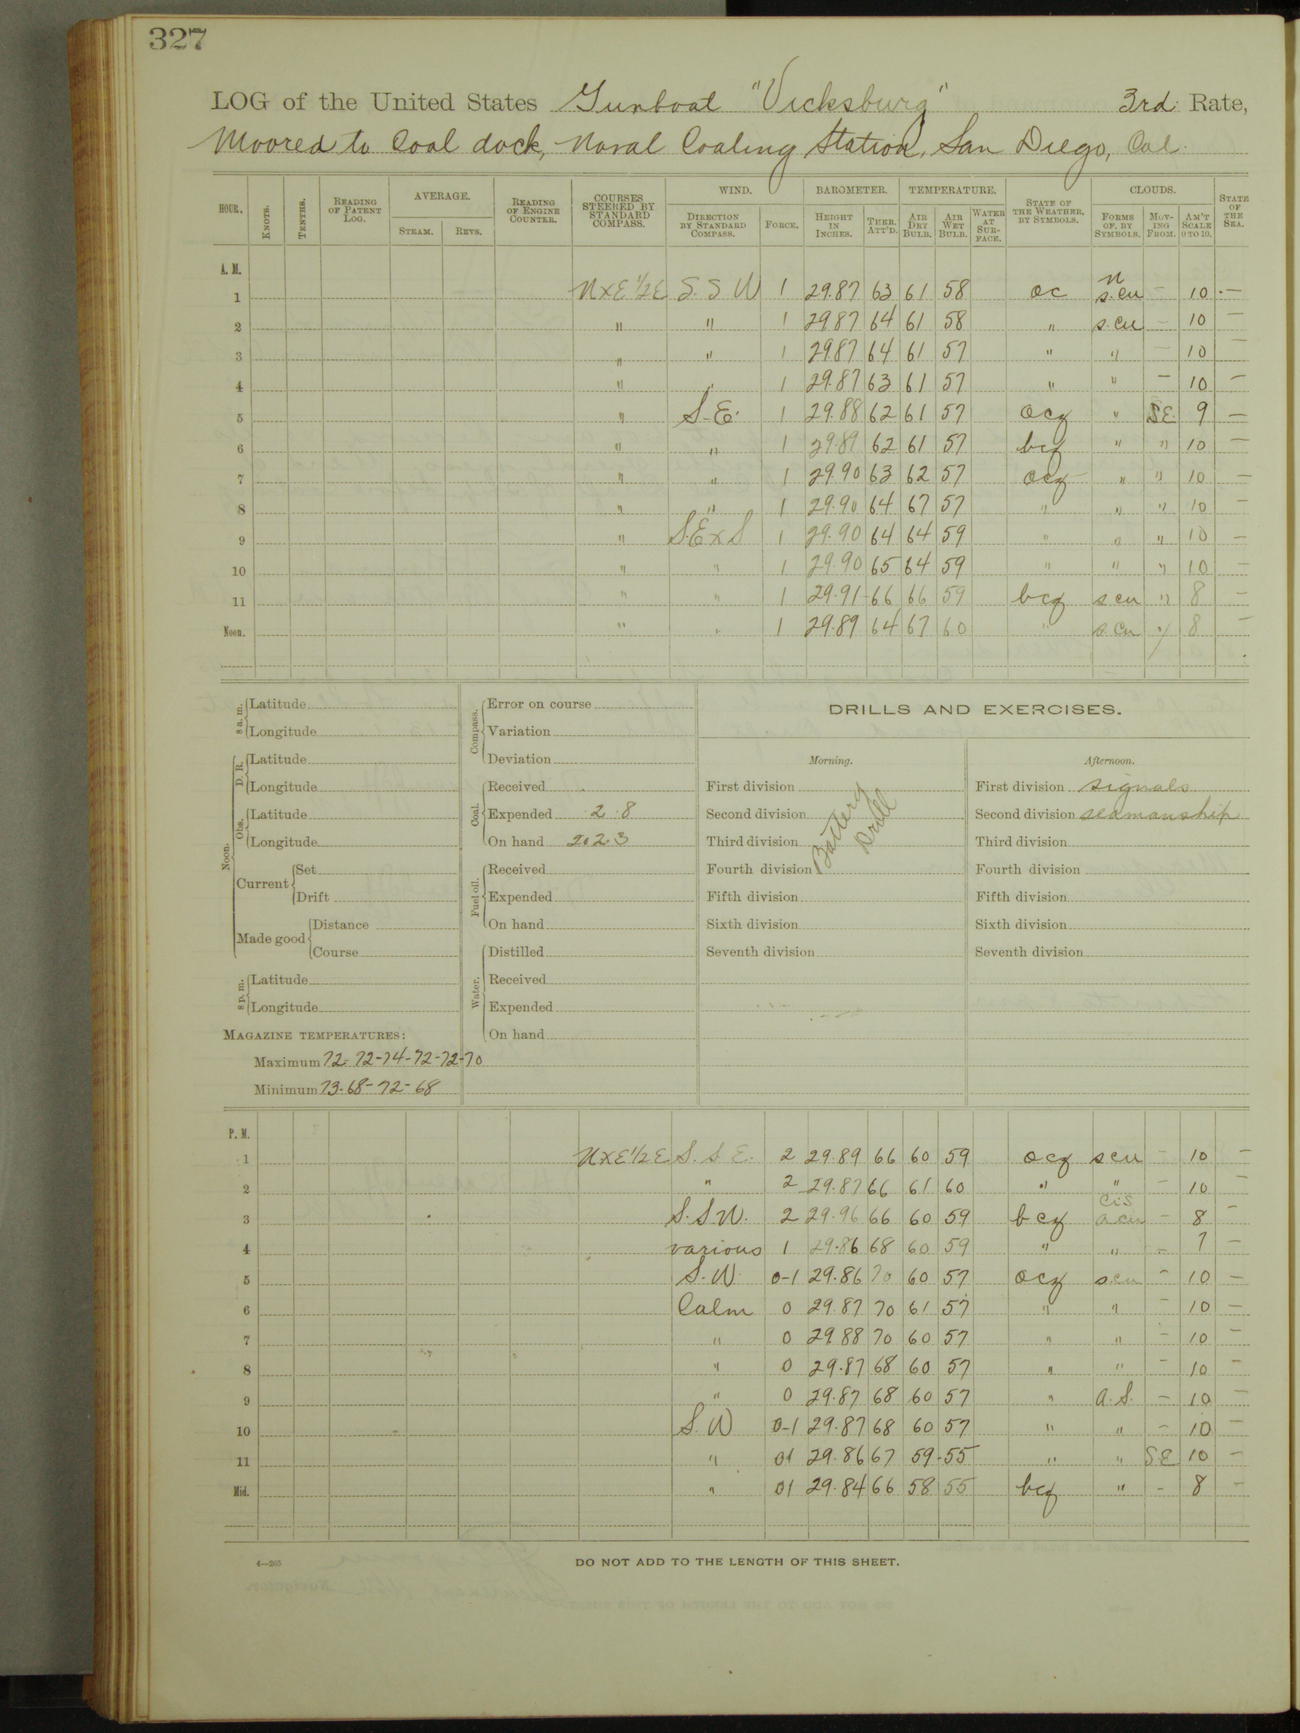 327
LOG of the United States Gunboat "Vicksburg" 3rd Rate,
Moored to Coal dock, Naval Coaling Station, San Diego, Cal.
HOUR. KNOTS. TENTHS. READING OF PATENT LOG. AVERAGE. STEAM. REVS. READING OF ENGINE COUNTER. COURSES STEERED BY STANDARD COMPASS. WIND. DIRECTION BY STANDARD COMPASS. FORCE. BAROMETER. HEIGHT IN INCHES. THER. ATT'D. TEMPERATURE. AIR DRY BULB. AIR WET BULB. WATER AT SURFACE. STATE OF THE WEATHER, BY SYMBOLS. CLOUDS. FORMS OF, BY SYMBOLS. MOVING FROM. AM'T SCALE 0 TO 10. STATE OF THE SEA.
A. M.
1 NxE 1/2 E S. S W 1 29.87 63 61 58 oc n s.cu - 10 -
2 " " 1 29.87 64 61 58 " s.cu - 10 -
3 " " 1 29.87 64 61 57 " " - 10 -
4 " " 1 29.87 63 61 57 " " - 10 -
5 " S.E. 1 29.88 62 61 57 ocq " S.E. 9 -
6 " " 1 29.89 62 61 57 bcq " " 10 -
7 " " 1 29.90 63 62 57 ocq " " 10 -
8 " " 1 29.90 64 67 57 " " " 10 -
9 " S.E x S 1 29.90 64 64 59 " " " 10 -
10 " " 1 29.90 65 64 59 " " " 10 -
11 " " 1 29.91 66 66 59 bcq s cu " 8 -
Noon. " " 1 29.89 64 67 60 " s.cu " 8 -
8 a. m. Latitude
Longitude
Noon. D. R. Latitude
Longitude
Obs. Latitude
Longitude
Current Set
Drift
Made good Distance
Course
8 p. m. Latitude
Longitude
MAGAZINE TEMPERATURES:
Maximum 72-72-74-72-72-70
Minimum 73-68-72-68
Compass. Error on course
Variation
Deviation
Coal. Received
Expended 2.8
On hand 202.3
Fuel oil. Received
Expended
On hand
Water. Distilled
Received
Expended
On hand
DRILLS AND EXERCISES.
Morning.
First division
Second division
Third division
Fourth division
Fifth division
Sixth division
Seventh division
Battery Drill
Afternoon.
First division signals
Second division seamanship
Third division
Fourth division
Fifth division
Sixth division
Seventh division
P. M.
1 NxE 1/2 E S. S E. 2 29.89 66 60 59 ocq scu - 10 -
2 " 2 29.87 66 61 60 " " - 10 -
3 S.S W. 2 29.96 66 60 59 bcq ci.s a.cu - 8 -
4 various 1 29.86 68 60 59 " " - 7 -
5 S.W. 0-1 29.86 70 60 57 ocq s.cu - 10 -
6 Calm 0 29.87 70 61 57 " " - 10 -
7 " 0 29.88 70 60 57 " " - 10 -
8 " 0 29.87 68 60 57 " " - 10 -
9 " 0 29.87 68 60 57 " a.s. - 10 -
10 S.W 0-1 29.87 68 60 57 " " - 10 -
11 " 01 29.86 67 59-55 " " S.E 10 -
Mid. " 01 29.84 66 58 55 bcq " - 8 -
4-265
DO NOT ADD TO THE LENGTH OF THIS SHEET.